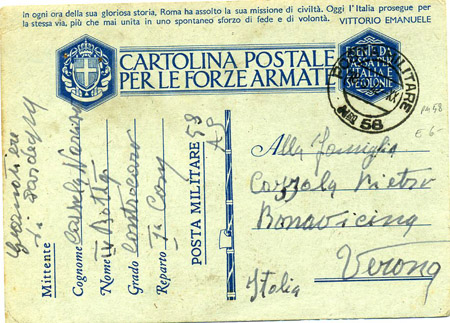 In ogni ora della sua gloriosa storia, Roma ha assolto la sua missione di civiltà. Oggi l'Italia prosegue per
la stessa via, più che mai unita in uno spontaneo sforzo di fede e di volontà. VITTORIO EMANUELE
CARTOLINA POSTALE
PER LE FORZE ARMATE
ESENTE DA
TASSA PER
L'ITALIA E
SUE COLONIE
POSTA MILITARE
58
PM 58
E 6-
Alla Famiglia
Cazzola Pietro
Bonavicina
Verona
Italia
POSTA MILITARE 58
Reparto 7a
Grado
Nome
Cognome
Mittente
Granatieri
di Sardegna